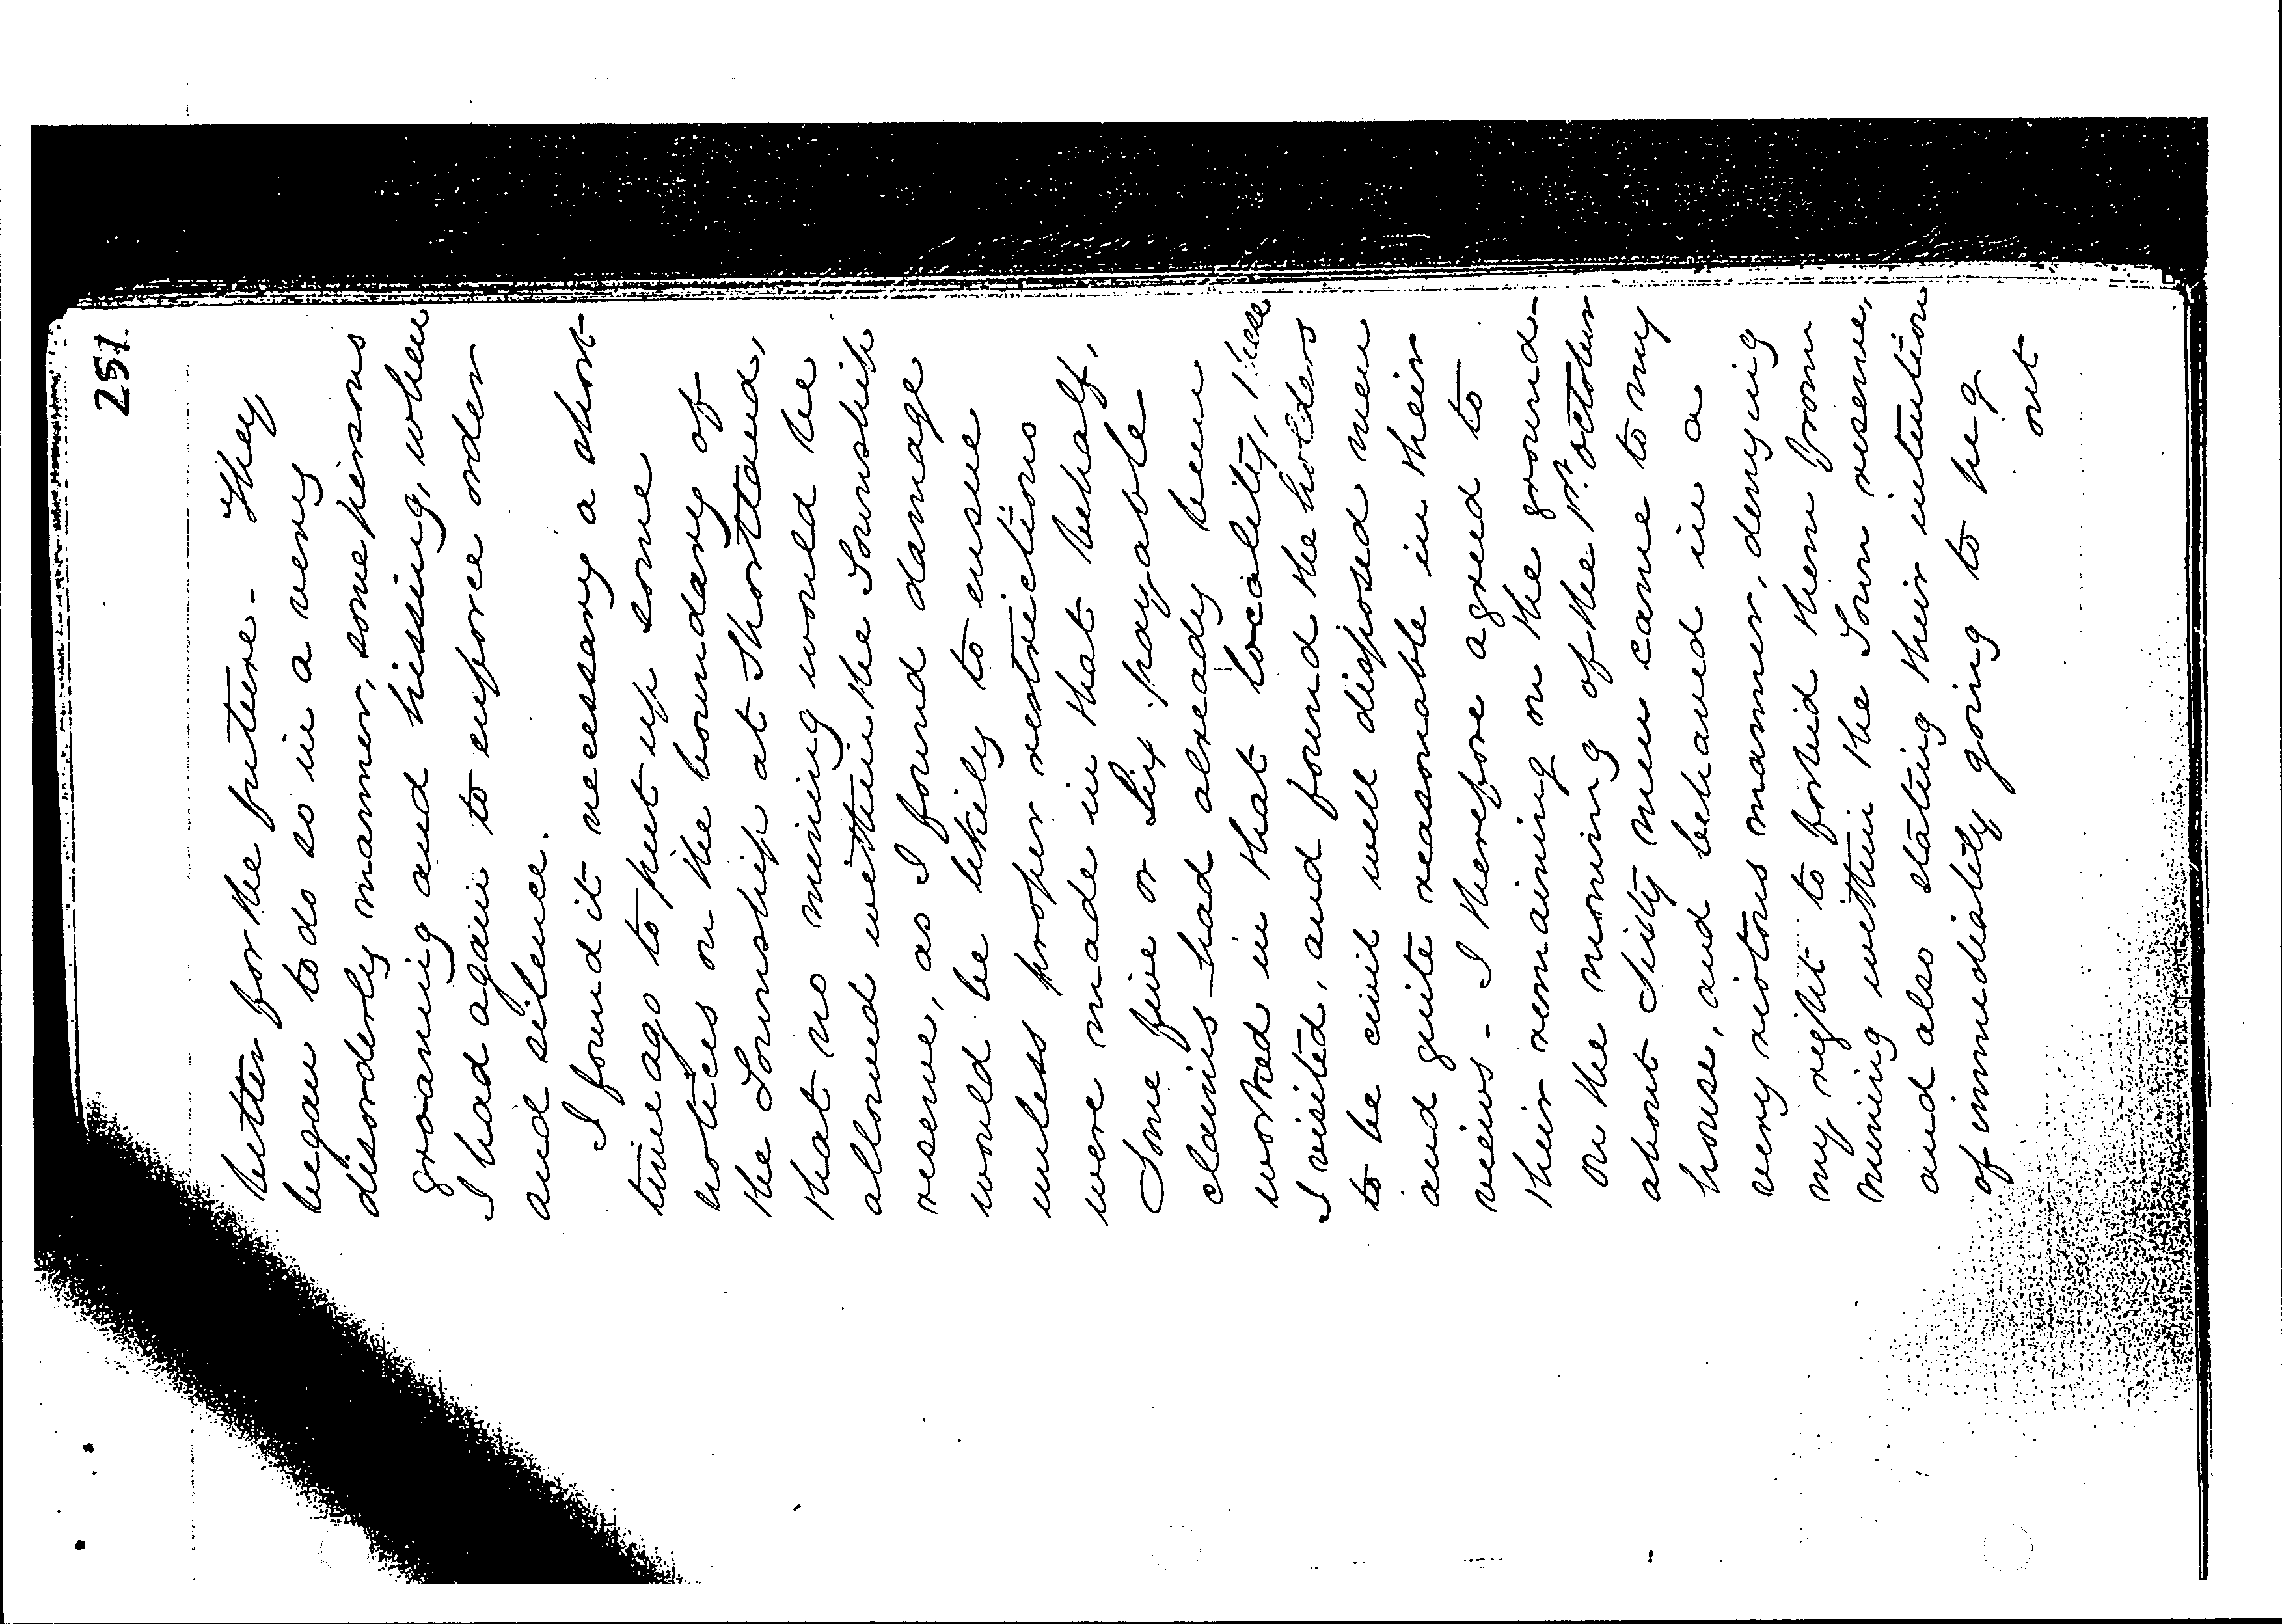 251
better for the future - They
began to do so in a very
disorderly manner, some persons
groaning and hissing, when
I had again to enforce order
and silence.
I found it necessary a short
time ago to put up some
notices on the boundary of
the Township at Shortland,
that no mining would be
allowed within the Township
reserve, as I found damage
would be likely to ensue
unless proper restrictions
were made in that behalf,
Some five or Six payable
claims had already been
worked in that locality, these
I visited, and found the holders
to be civil well disposed men
and quite reasonable in their
views - I therefore agreed to
their remaining on the ground -
On the morning of the 1st. October
about sixty men came to my
house, and behaved in a
very riotous manner, denying
my right to forbid them from
mining within the Town reserve,
and also stating their intention
of immediately going to peg
out